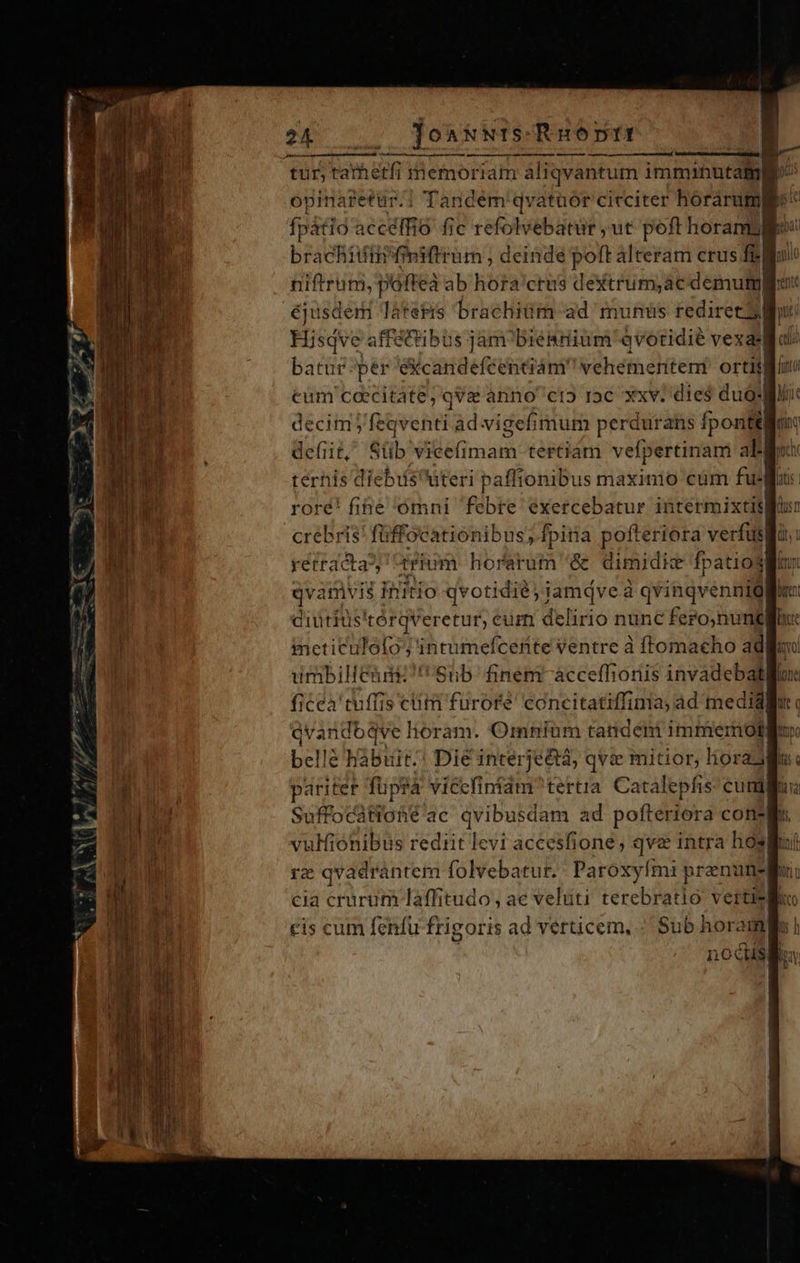 24 JOANNIS RHODII
tur, tametſi memoriam aliqvantum imminutam
opinaretur. Tandem qvatuor circiter horarum
ſpatio acceſſio ſic reſolvebatur, ut poſt horam
brachium ſiniſtrum, deinde poſt alteram crus ſi-
niſtrum, poſteà ab hora crus dextrum, ac demum
éjusdem lateris brachium ad munus rediret.
Hisqve affectibus jam biennium qvotidiè vexa-
batur per excandeſcentiam vehementem ortis
cum cœcitate, qvæ anno cIↃ IↃc xxv. dies duo-
decim, ſeqventi ad vigeſimum perdurans ſpontè
deſiit. Sub viceſimam tertiam veſpertinam al-
ternis diebus uteri paſſionibus maximo cum fu-
rore ſine omni febre exercebatur intermixtis
crebris ſuffocationibus, ſpina poſteriora verſus
retracta, trium horarum & dimidiæ ſpatio,
qvamvis initio qvotidiè, jamqve à qvinqvennio
diutiùs torqveretur, cum delirio nunc fero, nunc
meticuloſo, intumeſcente ventre à ſtomacho ad
umbilicum. Sub finem acceſſionis invadebat
ſicca tuſſis cum furore concitatiſſima, ad mediã
qvandoqve horam. Omnium tandem immemor
bellè habuit. Die interjectâ, qvæ mitior, hora
pariter ſuprà viceſimam tertia Catalepſis cum
Suffocatione ac qvibusdam ad poſteriora con-
vulſionibus rediit levi accesſione, qvæ intra ho-
ræ qvadrantem ſolvebatur. Paroxyſmi prænun-
cia crurum laſſitudo, ac veluti terebratio verti-
cis cum ſenſu frigoris ad verticem. Sub horam
noctis